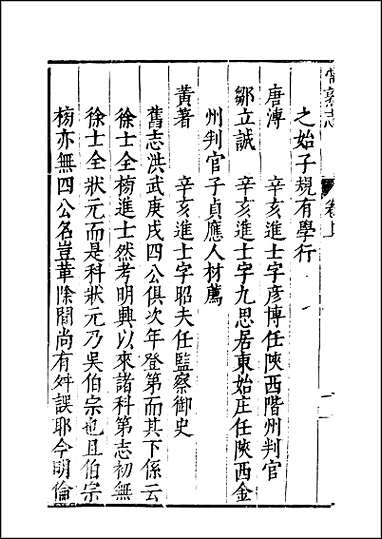 常熟志
卷上
之始子規有學行
唐溥　辛亥進士字彥博任陜西階州判官
鄒立誠　辛亥進士字九思居東始庄任陜西金
州判官子貞應人材薦
黃著　辛亥進士字昭夫任監察御史
舊志洪武庚戌四公俱次年登第而其下係云
徐士全榜進士然考明興以來諸科第志初無
徐士全狀元而是科狀元乃吳伯宗也且伯宗
榜亦無四公名豈草除間尚有舛誤耶今明倫